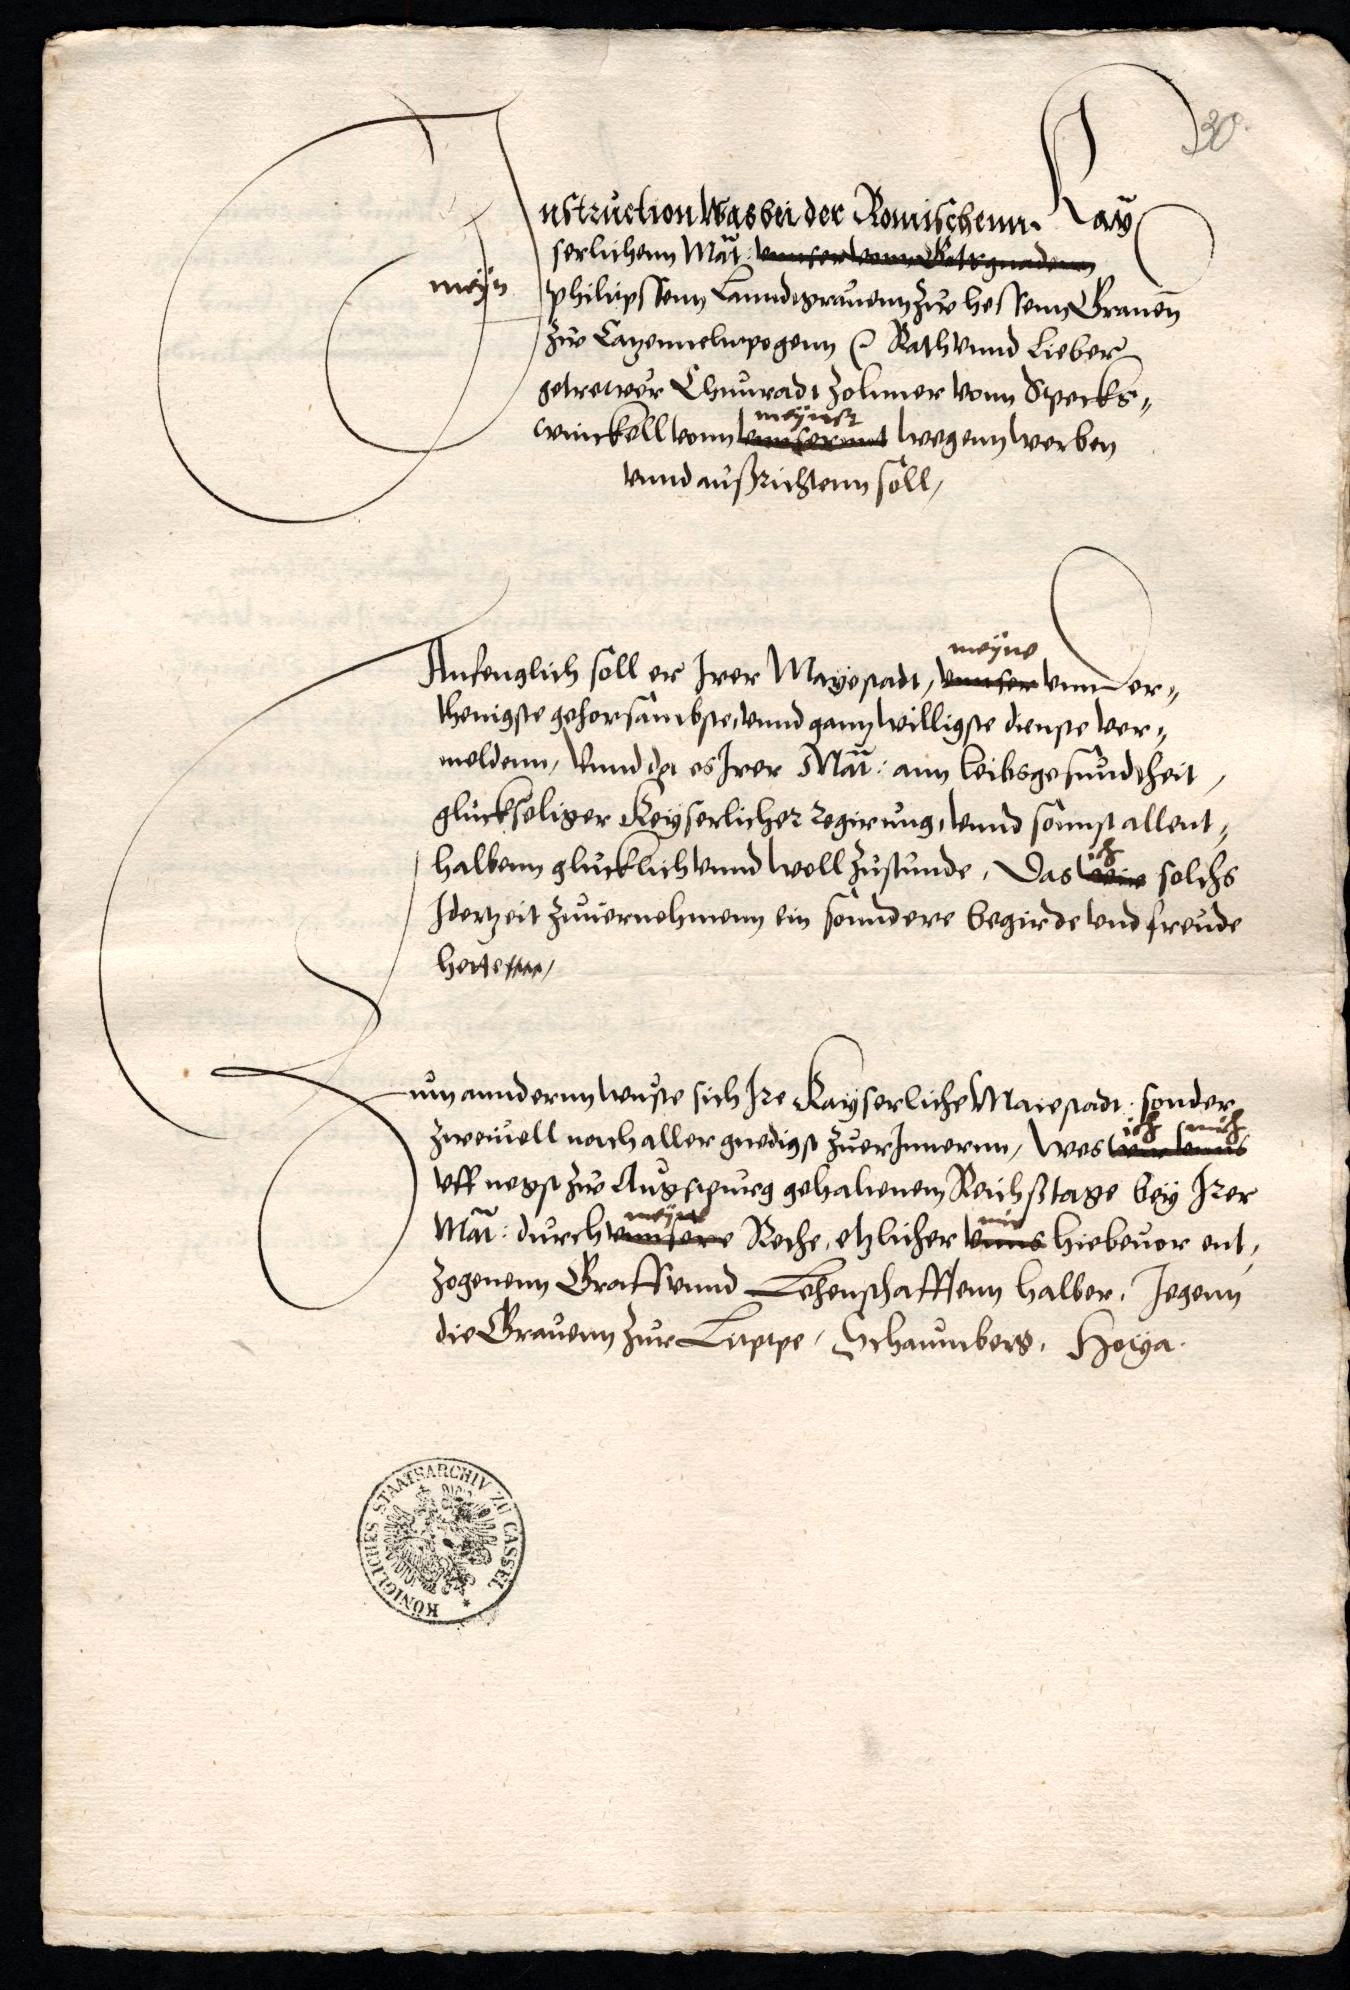 30.
Instruction Was bei der Romischenn Kay
serlichenn Mat: vnnser vonn Gots gnadenn
meyn
Philipssenn Lanndtgrauenn zw hessenn Grauen
zw Catzennelnpogenn Rath vnnd Lieber
getrewer Chunradt Zolnner vonn Specks-
meynet
winckell vonn vnnsernnt wegenn werben
vnnd außrichtenn soll,
meyne
Anfenglich soll er Irer Mayestadt, vnnser vnnder-
thenigste gehorsambste, vnnd gantz willigste dienste ver-
meldenn, Vnnd da es Irer Mat: ann leibsgesundtheit,
gluckseliger Keyserlicher regirung, vnnd sonnst allent-
ich
halbenn glucklich vnnd woll zustunde, Das wir solchs
Iderzeit zuuernehmenn ein sonndere begirde vnd freude
hettenn,
Zum anndernn wuste sich Ire Kayserliche Maiestadt sonder
ich mich
zweiuell noch aller gnedigst zuerInnernn, Wes wir vnns
vff negst zw Augspurg gehaltenem Reichßtage bey Irer
meyne mir
Mat: durch vnnsere Rethe, etzlicher vnns hiebeuor ent-
zogenenn Graff vnnd Lehenschafftenn halber, Jegenn
die Grauenn zur Lippe, Schaumberg, Hoya.
KÖNIGLICHES STAATSARCHIV ZU CASSEL